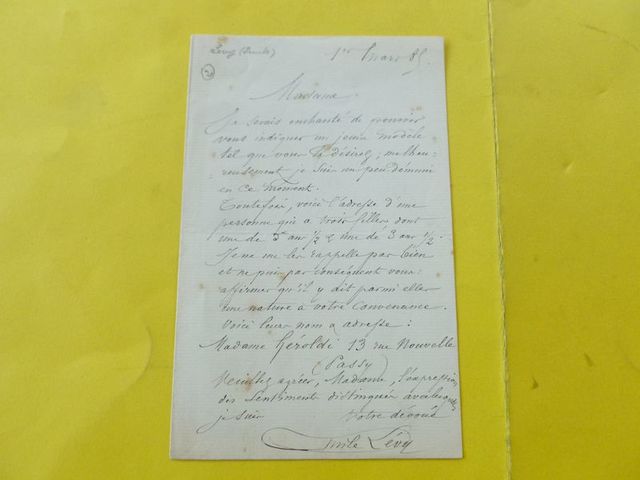 Levy (Emile)
2
1er Mars 85.
Madame.
Je serais enchanté de pouvoir
vous indiquer un jeune modèle
tel que vous le désirez, malheu-
reusement je suis un peu démuni
en ce moment.
Toutefois, voici l'adresse d'une
personne qui a trois filles dont
une de 5 ans 1/2 & une de 3 ans 1/2.
Je ne me les rappelle pas bien
et ne puis par conséquent vous
affirmer qu'il y ait parmi elles
une nature à votre convenance.
Voici leur nom & adresse :
Madame Géroldi 13 rue Nouvelle
(Passy)
Veuillez agréer, Madame, l'expression
des sentiments distingués avec lesquels
je suis votre dévoué
Emile Lévy